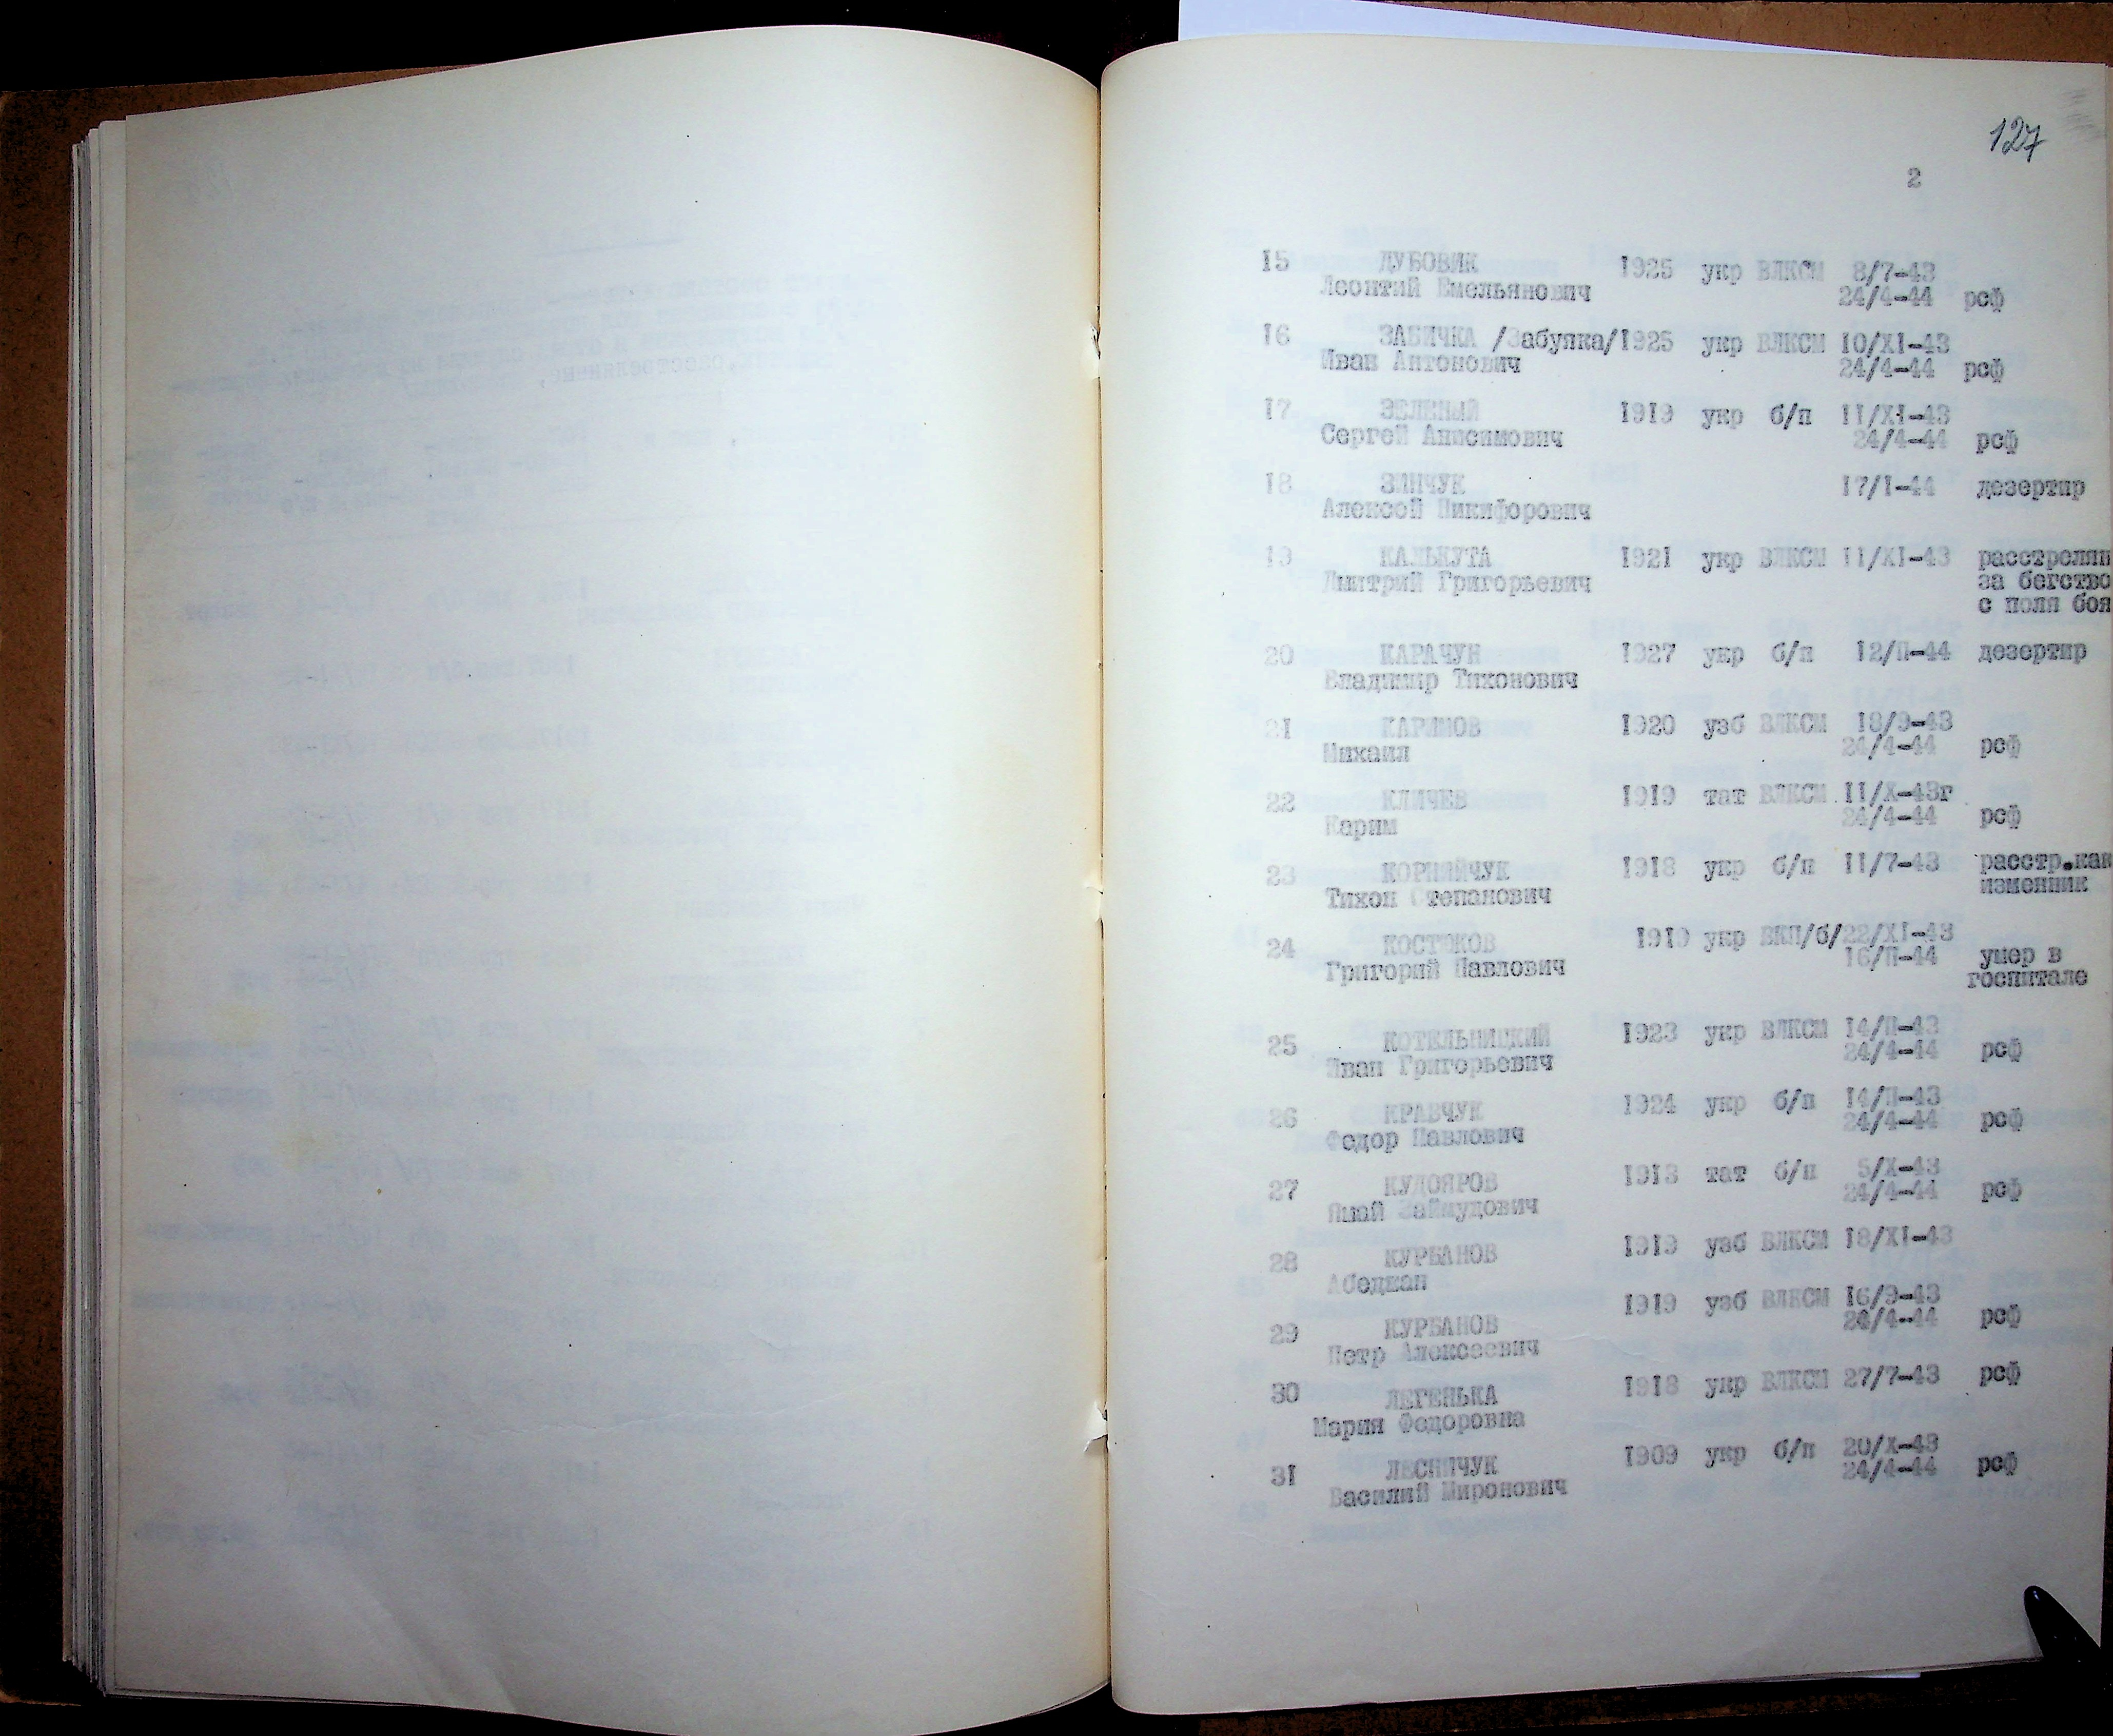 127
2
15 ДУБОВИК 1925 укр ВЛКСМ 8/7-43
Леонтий Емельянович 24/4-44 рсф
16 ЗАБИЧКА /Забупка/ 1925 укр ВЛКСМ 10/XI-43
Иван Антонович 24/4-44 рсф
17 ЗЕЛЕНЫЙ 1919 укр б/п 11/XI-43
Сергей Анисимович 24/4-44 рсф
18 ЗИНЧУК 17/I-44 дезертир
Алексей Никифорович
19 КАЛЬКУТА 1921 укр ВЛКСМ 11/XI-43 расстрелян
Дмитрий Григорьевич за бегство
с поля боя
20 КАРАЧУН 1927 укр б/п 12/П-44 дезертир
Владимир Тихонович
21 КАРИМОВ 1920 узб ВЛКСМ 18/9-43
Михаил 24/4-44 рсф
22 КЛИЧЕВ 1919 тат ВЛКСМ 11/X-43г
Карим 24/4-44 рсф
23 КОРНИЙЧУК 1918 укр б/п 11/7-43 расстр.как
Тихон Степанович изменник
24 КОСТЮКОВ 1919 укр ВКП/б/ 22/XI-43
Григорий Павлович 16/П-44 умер в
госпитале
25 КОТЕЛЬНИЦКИЙ 1923 укр ВЛКСМ 14/П-43
Иван Григорьевич 24/4-44 рсф
26 КРАВЧУК 1924 укр б/п 14/П-43
Федор Павлович 24/4-44 рсф
27 КУДОЯРОВ 1913 тат б/п 5/X-43
Ямай Займудович 24/4-44 рсф
28 КУРБАНОВ 1919 узб ВЛКСМ 18/XI-43
Абеджан
29 КУРБАНОВ 1919 узб ВЛКСМ 16/9-43
Петр Алексеевич 24/4-44 рсф
30 ЛЕГЕНЬКА 1918 укр ВЛКСМ 27/7-43 рсф
Мария Федоровна
31 ЛЕСНИЧУК 1909 укр б/п 20/X-43
Василий Миронович 24/4-44 рсф